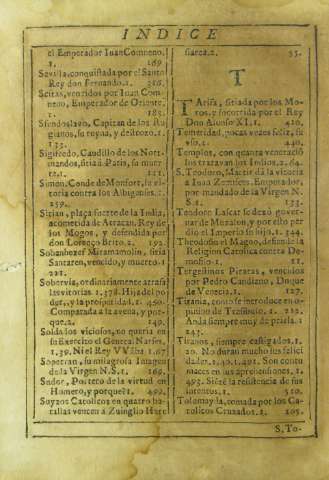 INDICE
el Emperador Iuan Comneno.
1. 169
Sevilla, conquistada por el Santo
Rey don Fernando. 1. 316.
Scitas, vencidos por Iuan Comneno, Emperador de Oriente,
1. 185.
Capitan de los Rugianos, su
133.
Sigifredo, Caudillo de los Normandos, sitia á Paris, su muerte, 1. 111.
Simon, Conde de Monfort, su vitoria contra los Albigenses. 1.
259.
Sirian, plaça fuerte de la India,
acometida de Arracan, Rey de
los Mogos, y defendida por
don Lorenço Brito. 2. 192.
Miramamolin, sitia
Santaren, vencido, y muerto. 1
221.
Sobervia, ordinariamente arrastra
las vitorias. 1. 378. Hija del poder, y la prosperidad. 1. 450.
Comparada a la avena, y porque. 2. 140.
Soldados viciosos, no queria en
su Exercito el General Narses,
1. 39. Ni el Rey
su milagrosa Imagen
de la Virgen N. S. 1. 169.
Sudor, Portero de la virtud en
Homero, y porque? 1. 499.
Suyzos Catolicos en quatro batallas vencen à Zuinglio Here
siarca. 2. 55.
T
TArifa, sitiada por los Moros, y socorrida por el Rey
Don Alonso XI. 1. 420.
Temeridad, pocas vezes feliz, su
1. 440.
Templos, con quanta veneració
los tratavan los Indios. 2. 64.
S. Teodoro, Martir dá la vitoria
a Iuan Emperador,
por mandado de la Virgen N.
S. 1. 133.
Teodoro Lascar se dexó governar de Muzalon, y por ello perdio el Imperio su hijo. 1. 344.
Theodosio el Magno, defiende la
Religion Catolica contra Demofilo. 1. 11.
Tergestinos Piratas, vencidos
por Pedro Candiano, Duque
de Venecia. 1. 127.
Titania, como se introduce en opinion de 1. 212.
Anda siempre muy de prisa. 1
243.
Tiranos, siempre castigados. 1.
20. No duran mucho sus felicidades. 1. 40. 1. 491. Son contumaces en sus aprehensiones. 1.
493. la resistencia de sus
intentos. 1. 510.
Tolomayla, tomada por los Catolicos Cruzados. 2. 205.
S. To-